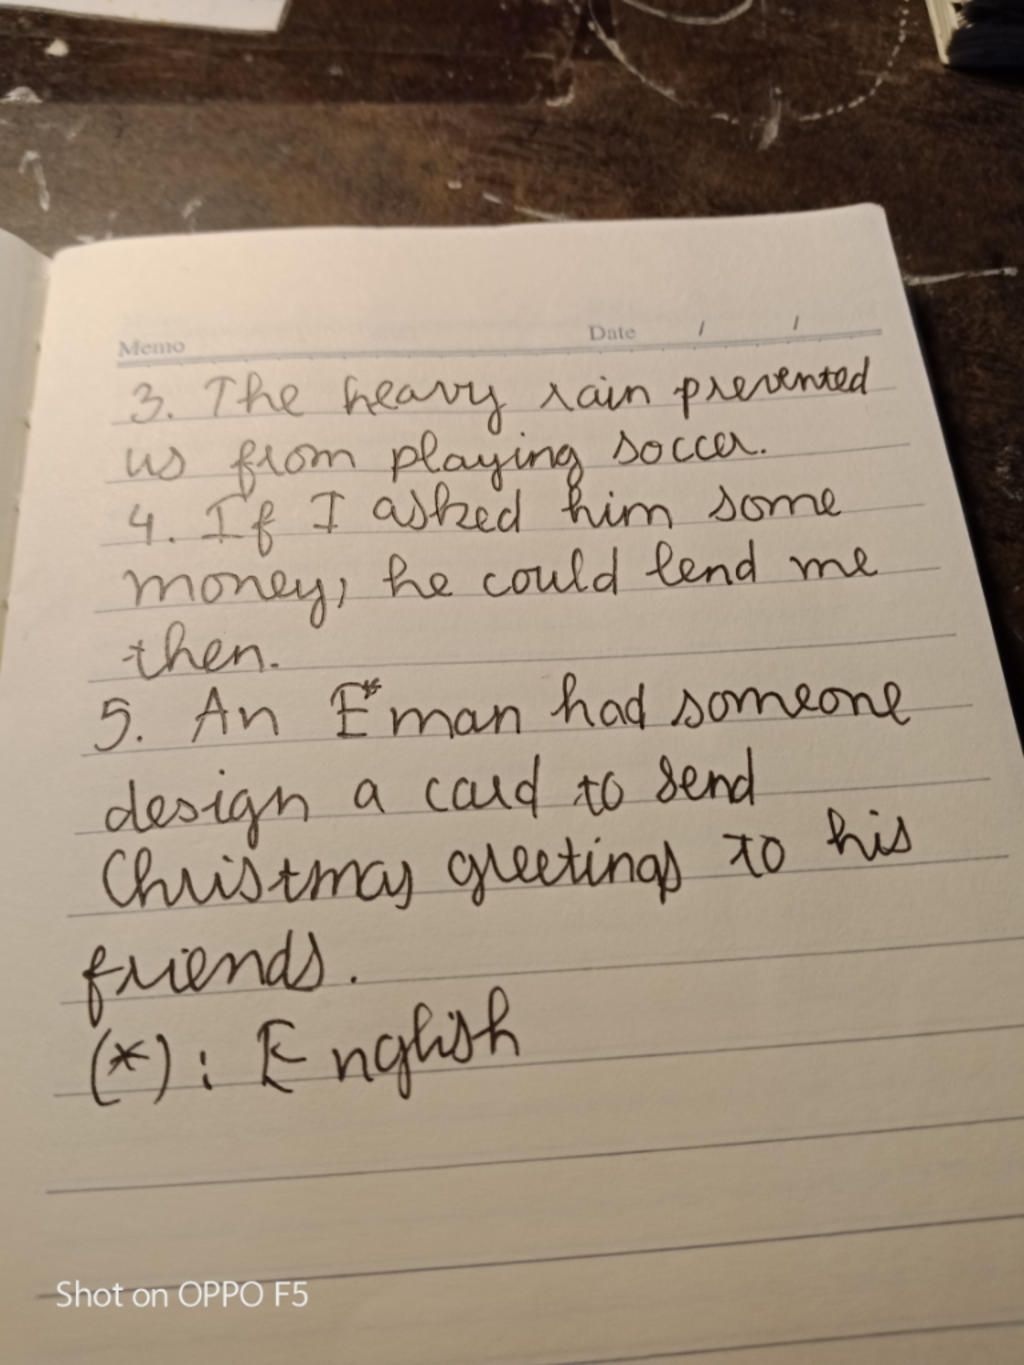 Memo Date / /
3. The heavy rain prevented
us from playing soccer.
4. If I asked him some
money, he could lend me
then.
5. An E* man had someone
design a card to send
Christmas greetings to his
friends.
(*): English
Shot on OPPO F5